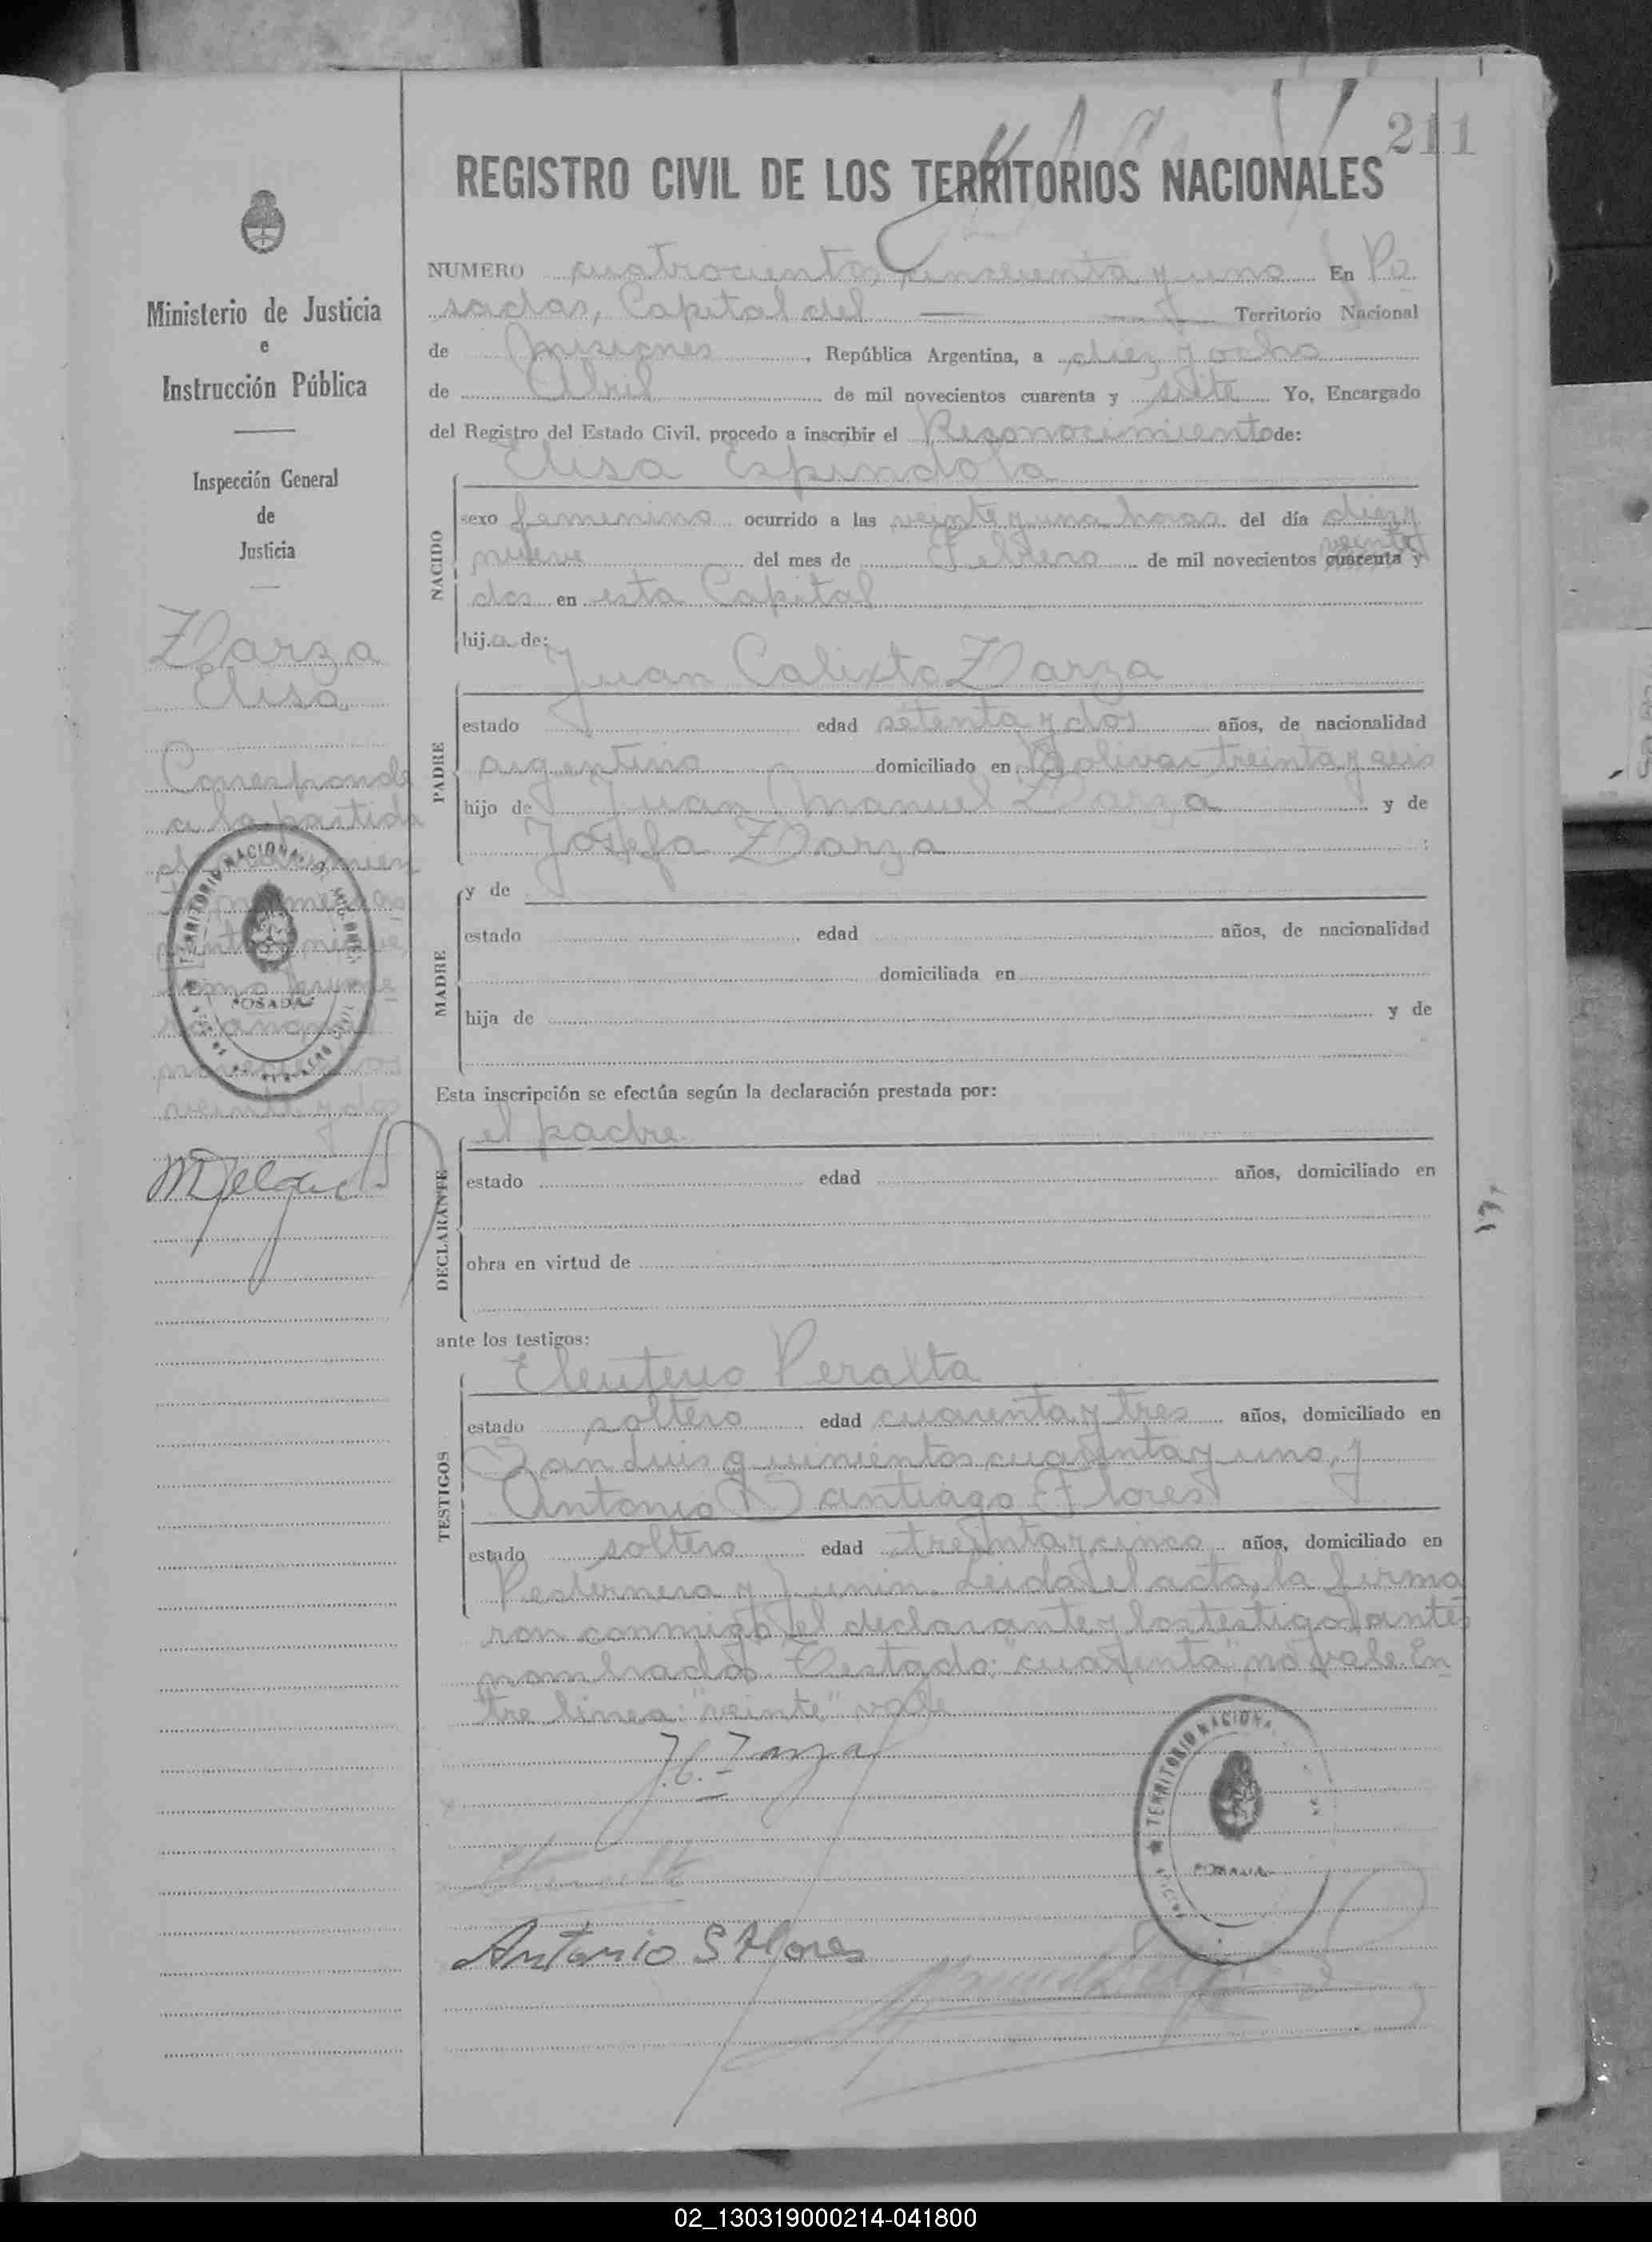 211
REGISTRO CIVIL DE LOS TERRITORIOS NACIONALES
Ministerio de Justicia
e
Instrucción Pública
Inspección General
de
Justicia
Zarza
Elisa
Corresponde
a la partida
nueve
veinte y dos
TERRITORIO NACIONAL
POSADAS
NUMERO cuatrocientos cincuenta y uno En Po
sadas, Capital del Territorio Nacional
de Misiones, República Argentina, a diez y ocho
de Abril de mil novecientos cuarenta y siete Yo, Encargado
del Registro del Estado Civil, procedo a inscribir el Reconocimiento de:
Elisa Espindola
NACIDO
sexo femenino ocurrido a las veinte y una horas del día diez y
nueve del mes de Febrero de mil novecientos cuarenta veinte y
dos en esta Capital
hija de:
Juan Calixto Zarza
PADRE
estado edad setenta y dos años, de nacionalidad
argentino domiciliado en Bolivar treinta y seis
hijo de Juan Manuel Zarza y de
Josefa Zarza
y de
MADRE
estado edad años, de nacionalidad
domiciliada en
hija de y de
Esta inscripción se efectúa según la declaración prestada por:
el padre
DECLARANTE
estado edad años, domiciliado en
obra en virtud de
ante los testigos:
Eleuterio Peralta
TESTIGOS
estado soltero edad cuarenta y tres años, domiciliado en
San Luis quinientos cuarenta y uno, y
Antonio Santiago Flores
estado soltero edad treinta y cinco años, domiciliado en
Pedernera y Junin. Leida el acta, la firma
ron conmigo el declarante y los testigos antes
nombrados. Testado: "cuarenta" no vale. En
tre linea: "veinte" vale
J. C. Zarza
Antonio S Flores
TERRITORIO NACIONAL
POSADAS
02_130319000214-041800